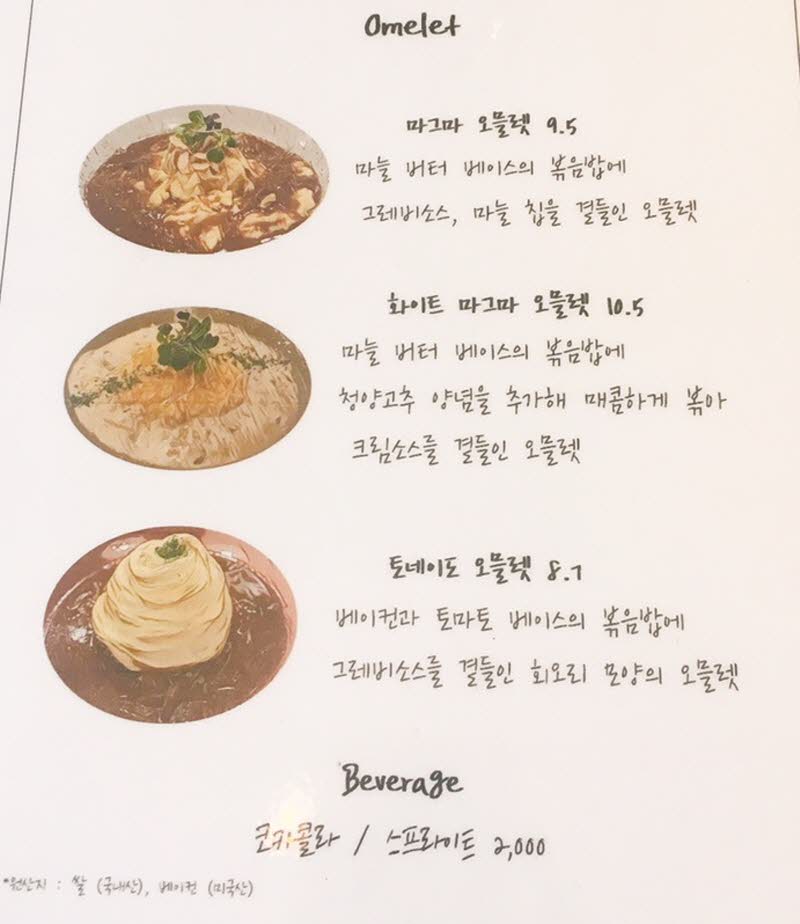 Omelet
마그마 오믈렛 9.5
마늘 버터 베이스의 볶음밥에
그레비소스, 마늘 칩을 곁들인 오믈렛
화이트 마그마 오믈렛 10.5
마늘 버터 베이스의 볶음밥에
청양고추 양념을 추가해 매콤하게 볶아
크림소스를 곁들인 오믈렛
토네이도 오믈렛 8.7
베이컨과 토마토 베이스의 볶음밥에
그레비소스를 곁들인 회오리 모양의 오믈렛
Beverage
코카콜라 / 스프라이트 2,000
*원산지 : 쌀 (국내산), 베이컨 (미국산)